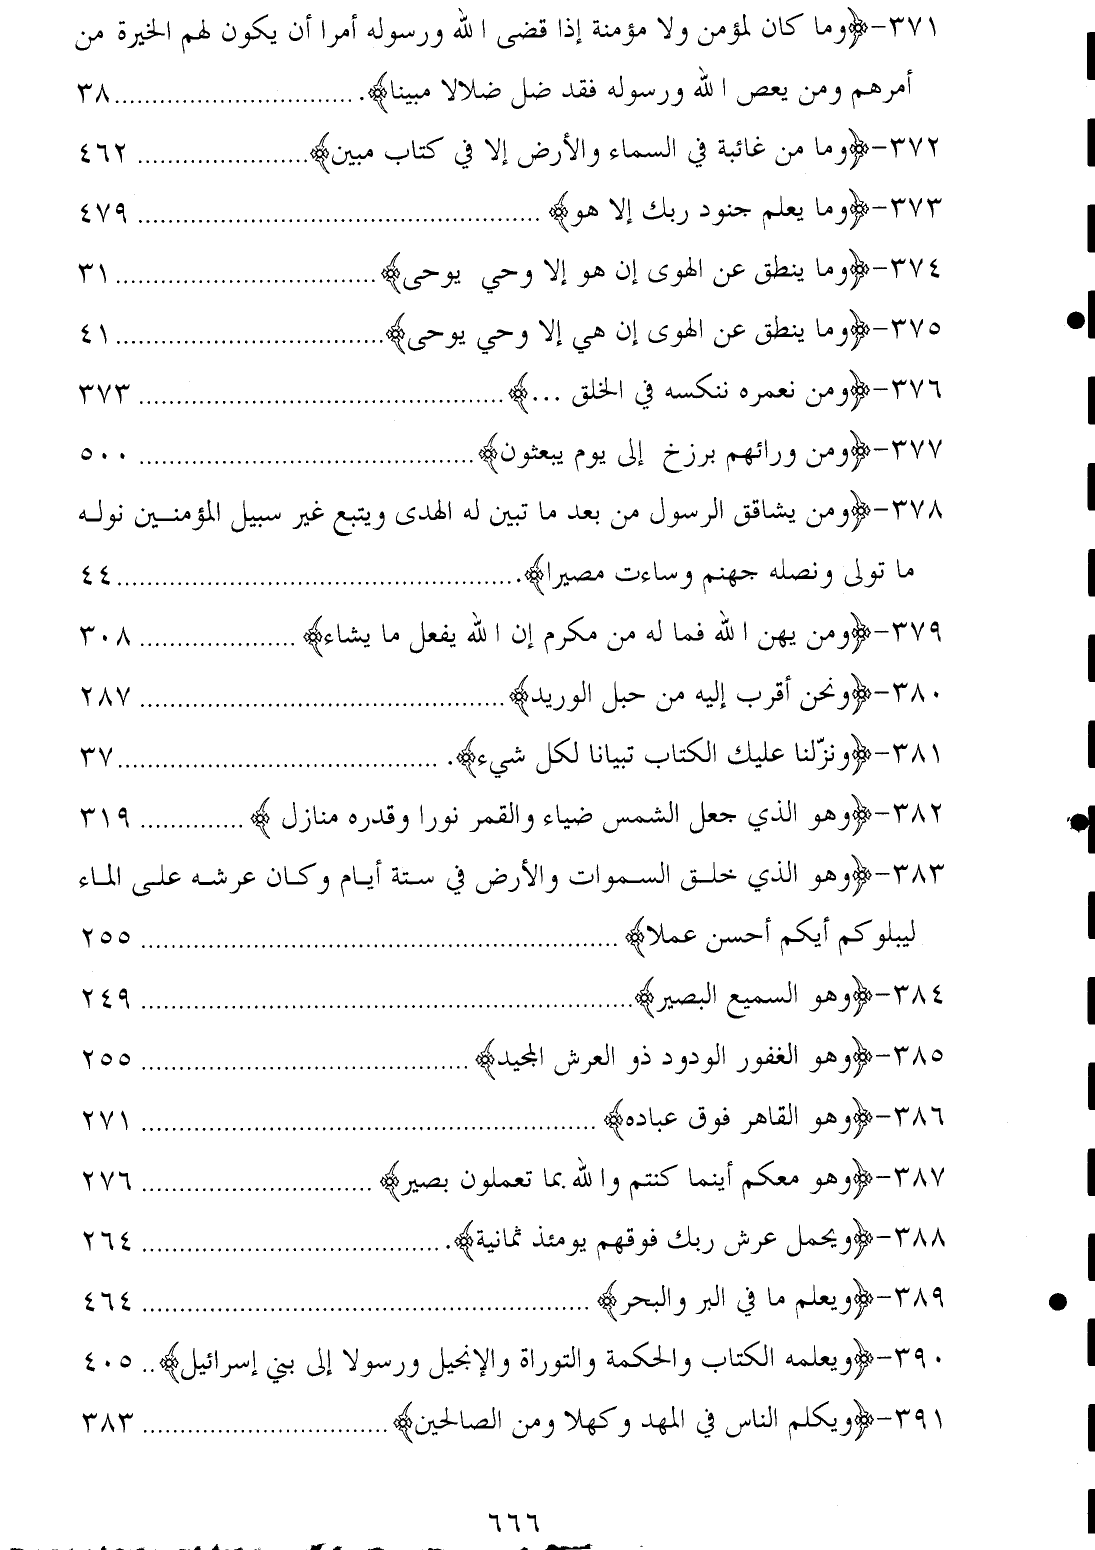 ٣٧١-﴿وما كان لمؤمن ولا مؤمنة إذا قضى الله ورسوله أمرا أن يكون لهم الخيرة من
أمرهم ومن يعص الله ورسوله فقد ضل ضلالا مبينا﴾. ................................٣٨
٣٧٢-﴿وما من غائبة في السماء والأرض إلا في كتاب مبين﴾....................... ٤٦٢
٣٧٣-﴿وما يعلم جنود ربك إلا هو﴾ ...................................................... ٤٧٩
٣٧٤-﴿وما ينطق عن الهوى إن هو إلا وحي يوحى﴾...................................٣١
٣٧٥-﴿وما ينطق عن الهوى إن هي إلا وحي يوحى﴾....................................٤١
٣٧٦-﴿ومن نعمره ننكسه في الخلق ...﴾................................................. ٣٧٣
٣٧٧-﴿ومن ورائهم برزخ إلى يوم يبعثون﴾............................................. ٥٠٠
٣٧٨-﴿ومن يشاقق الرسول من بعد ما تبين له الهدى ويتبع غير سبيل المؤمنين نوله
ما تولى ونصله جهنم وساءت مصيرا﴾......................................................٤٤
٣٧٩-﴿ومن يهن الله فما له من مكرم إن الله يفعل ما يشاء﴾ ..................... ٣٠٨
٣٨٠-﴿ونحن أقرب إليه من حبل الوريد﴾................................................. ٢٨٧
٣٨١-﴿ونزّلنا عليك الكتاب تبيانا لكل شيء﴾. ...........................................٣٧
٣٨٢-﴿وهو الذي جعل الشمس ضياء والقمر نورا وقدره منازل ﴾ .............. ٣١٩
٣٨٣-﴿وهو الذي خلق السموات والأرض في ستة أيام وكان عرشه على الماء
ليبلوكم أيكم أحسن عملا﴾ ................................................................ ٢٥٥
٣٨٤-﴿وهو السميع البصير﴾.................................................................. ٢٤٩
٣٨٥-﴿وهو الغفور الودود ذو العرش المجيد﴾ ............................................ ٢٥٥
٣٨٦-﴿وهو القاهر فوق عباده﴾ ............................................................. ٢٧١
٣٨٧-﴿وهو معكم أينما كنتم والله بما تعملون بصير﴾ ............................... ٢٧٦
٣٨٨-﴿ويحمل عرش ربك فوقهم يومئذ ثمانية﴾. ........................................ ٢٦٤
٣٨٩-﴿ويعلم ما في البر والبحر﴾ ............................................................ ٤٦٤
٣٩٠-﴿ويعلمه الكتاب والحكمة والتوراة والإنجيل ورسولا إلى بني إسرائيل﴾.. ٤٠٥
٣٩١-﴿ويكلم الناس في المهد وكهلا ومن الصالحين﴾................................. ٣٨٣
٦٦٦